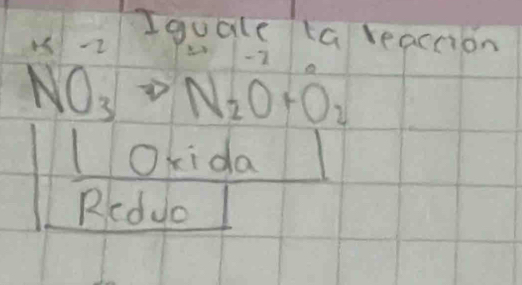 Iguale la reacción
+5 -2 -2 0
NO₃ → N₂O + O₂
Oxida
Reduo